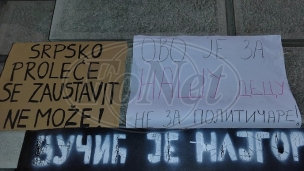 SRPSKO
PROLEĆE
SE ZAUSTAVIT
NE MOŽE!
ОВО ЈЕ ЗА
НАШУ ДЕЦУ
НЕ ЗА ПОЛИТИЧАРЕ!
ВУЧИЋ ЈЕ НАЈГОР